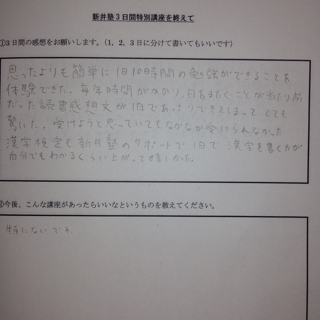 新井塾3日間特別講座を終えて
①3日間の感想をお願いします。（1，2，3日に分けて書いてもいいです）
思ったよりも簡単に1日10時間の勉強ができることを
体験できた。毎年時間がかかり、日をまたぐことが当たり前
だった読書感想文が1日であっさりできてしまって とても
驚いた。受けようと思っていてもなかなか受けられなかった
漢字検定も新井塾のサポートで1日で漢字を書く力が
自分でもわかるくらい上がって嬉しかった。
②今後、こんな講座があったらいいなというものを教えてください。
特にないです